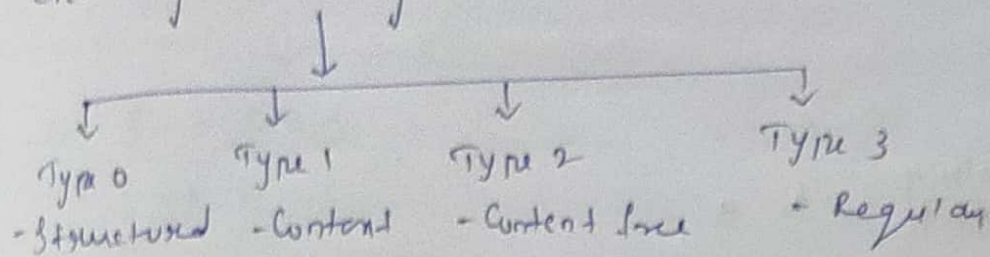 Type 0 Type 1 Type 2 Type 3
- Structured - Content - Content free - Regular